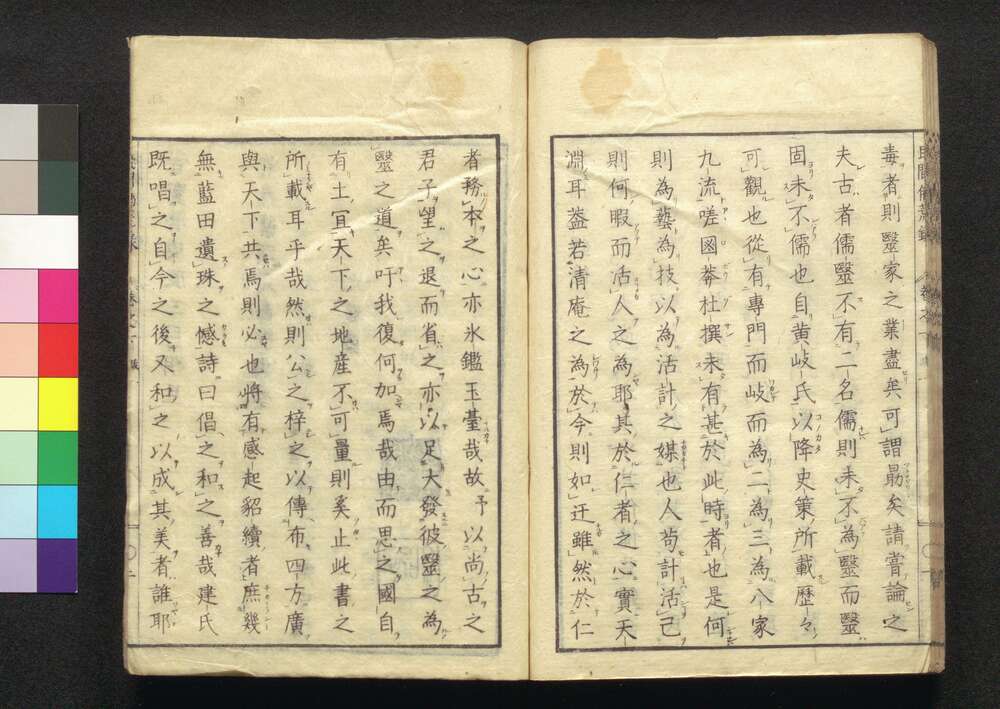 毒者則毉家之業盡矣可謂勗矣請嘗論之
夫古者儒毉不有二名儒則未不為毉而毉
固未不儒也自黄岐氏以降史策所載歷々
可觀也從有專門而岐而為二為三為八家
九流嗟國莾杜撰未有甚於此時者也是何
則為藝為技以為活計之媒也人苟計活己
則何暇而活人之為耶其於仁者之心實天
淵耳盖若清庵之為於今則如迂雖然於仁
者務本之心亦氷鑑玉臺哉故予以尚古之
君子望之退而省之亦以足大發彼毉之為
毉之道矣吁我復何加焉哉由而思之國自
有土冝天下之地產不可量則奚止此書之
所載耳乎哉然則公之梓之以傳布四方廣
與天下共焉則必也將有感起貂續者庶幾
無藍田遺珠之憾詩曰倡之和之善哉建氏
既唱之自今之後又和之以成其美者誰耶